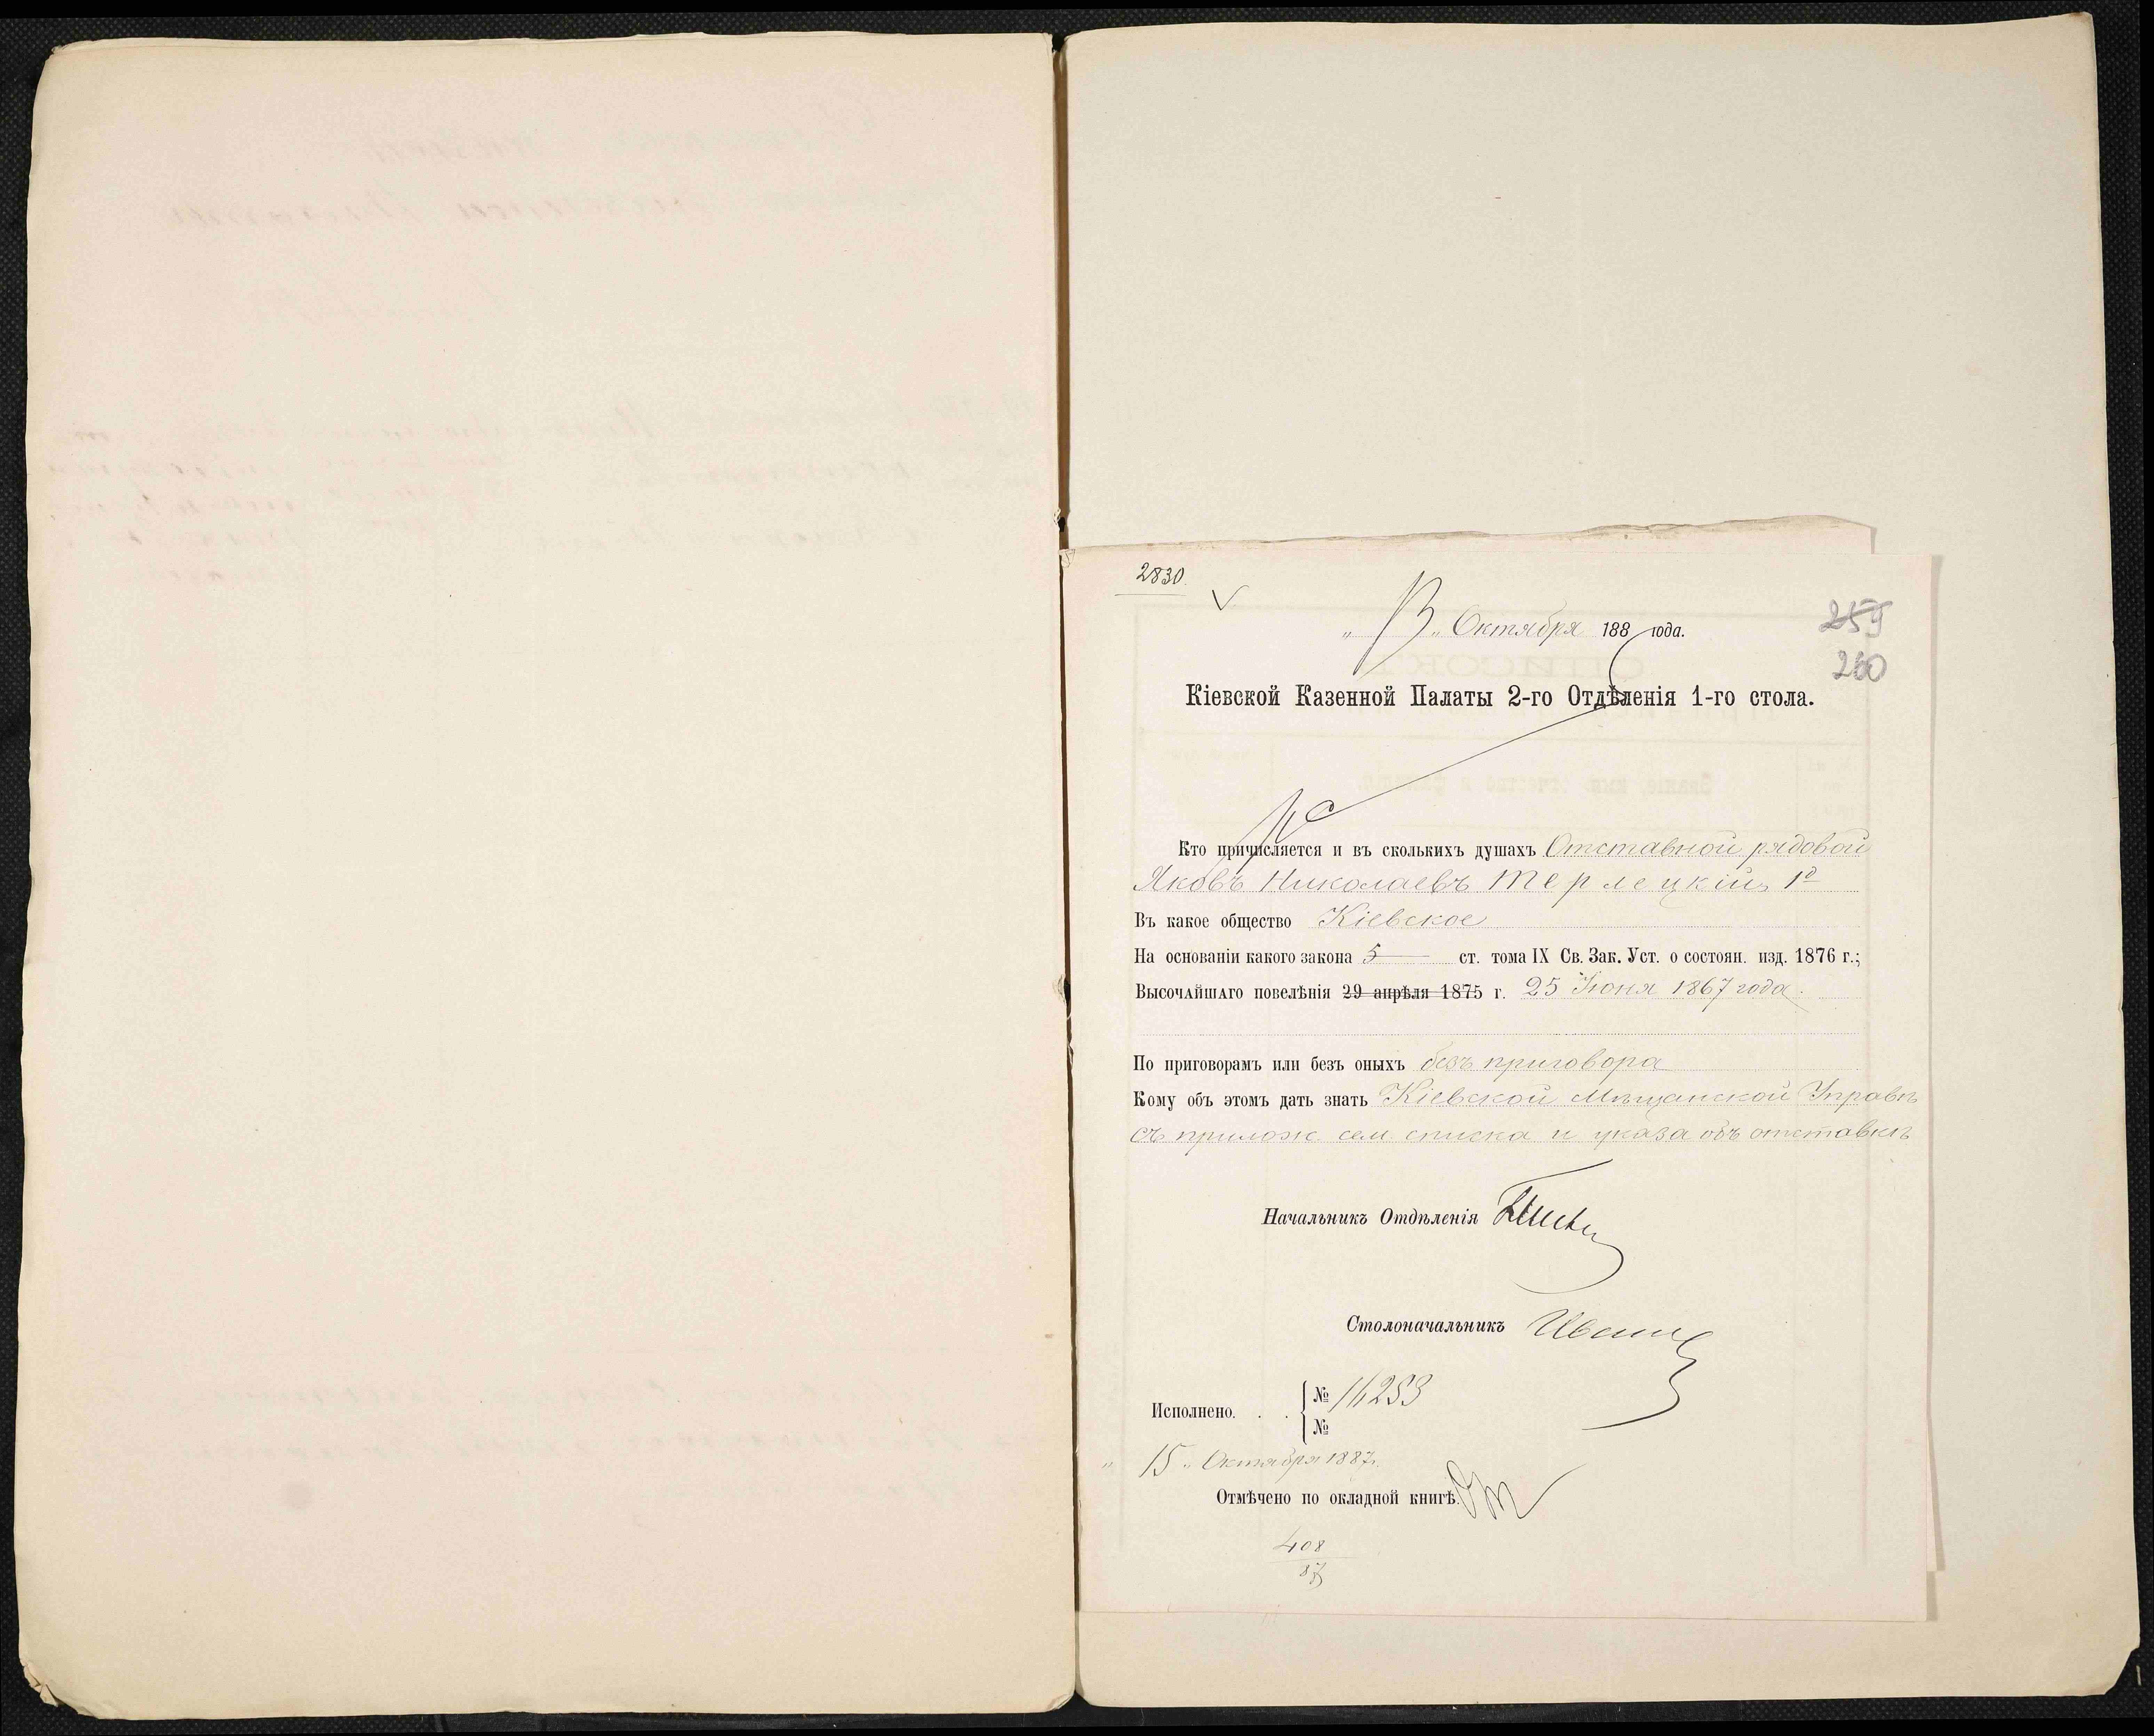 2830
„13„ Октября 188 года.
259
260
Кіевской Казенной Палаты 2-го Отдѣленія 1-го стола.
Кто причисляется и въ сколькихъ душахъ Отставной рядовой
Яковъ Николаевъ Терлецкій, 1 д
Въ какое общество Кіевское
На основаніи какого закона 5 ст. тома IX Св. Зак. Уст. о состоян. изд. 1876 г.;
Высочайшаго повелѣнія 29 апрѣля 1875 г. 25 Іюня 1867 года.
По приговорамъ или безъ оныхъ безъ приговора
Кому объ этомъ дать знать Кіевской Мѣщанской Управѣ
съ прилож сем списка и указа объ отставкѣ
Начальникъ Отдѣленія
Столоначальникъ
Исполнено. . . № 14253
№
„ 15 „ Октября 1887 г.
Отмѣчено по окладной книгѣ.
408
87